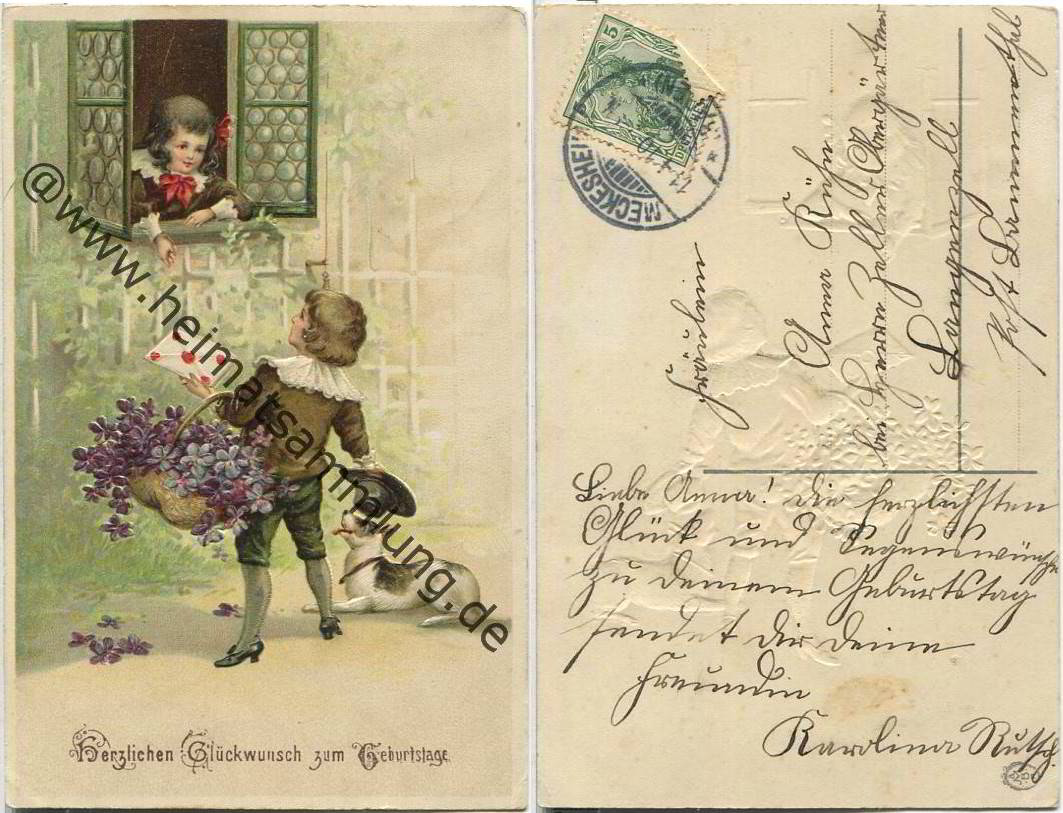 @www.heimatsammlung.de
Herzlichen Glückwunsch zum Geburtstage.
5
MECKESHEIM
Fräulein
Anna Kühn
bei Herrn Zeller Obergärtner
Langenzell
Post Bammenthal
Liebe Anna! die herzlichsten
Glück und Segenswünsche
zu deinem Geburtstag
sendet dir deine
Freundin
Karolina Rutsch.